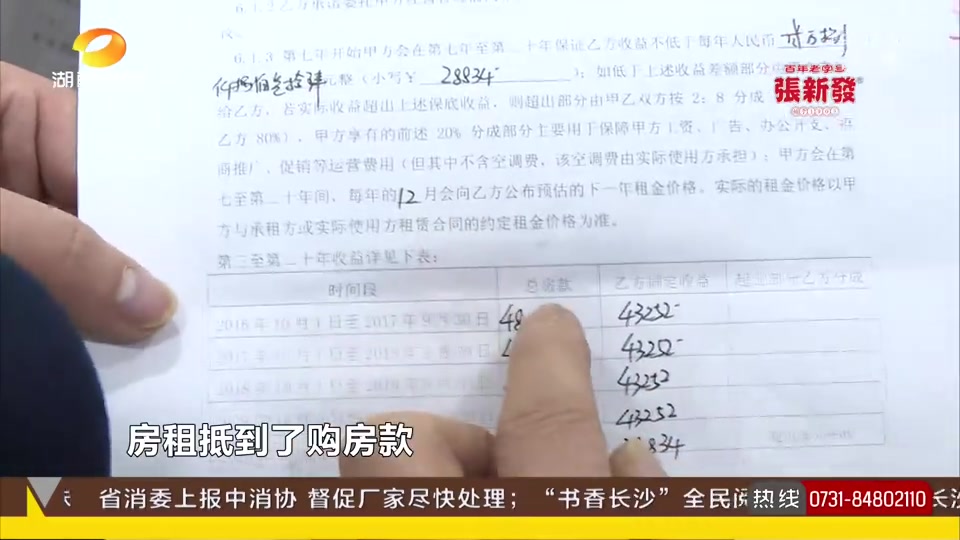 6.1.2 乙方承诺委托甲方经营管理
6.1.3 第七年开始甲方会在第七年至第二十年保证乙方收益不低于每年人民币 贰万捌
仟捌佰叁拾肆元整（小写￥ 28834- ）；如低于上述收益差额部分由
给乙方，若实际收益超出上述保底收益，则超出部分由甲乙双方按 2：8 分成
乙方 80%），甲方享有的前述 20% 分成部分主要用于保障甲方工资、广告、办公开支、招
商推广、促销等运营费用（但其中不含空调费，该空调费由实际使用方承担）；甲方会在第
七至第二十年间，每年的12月会向乙方公布预估的下一年租金价格。实际的租金价格以甲
方与承租方或实际使用方租赁合同的约定租金价格为准。
第二至第二十年收益详见下表：
时间段 总房款 乙方固定收益 超出部分乙方分成
2016 年 10 月 1 日至 2017 年 9 月 30 日 48 43252-
2017 年 10 月 1 日至 2018 年 9 月 30 日 43252-
2018 年 10 月 1 日至 2019 年 43252
43252
28834
湖
百年老字号
張新發
房租抵到了购房款
省消委上报中消协 督促厂家尽快处理；“书香长沙”全民阅 热线 0731-84802110 长沙